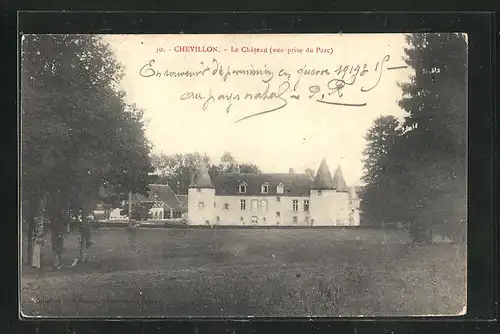 30. - CHEVILLON. - Le Château (vue prise du Parc)
En souvenir de permission en guerre 1914 à 15
au pays natal - P. R